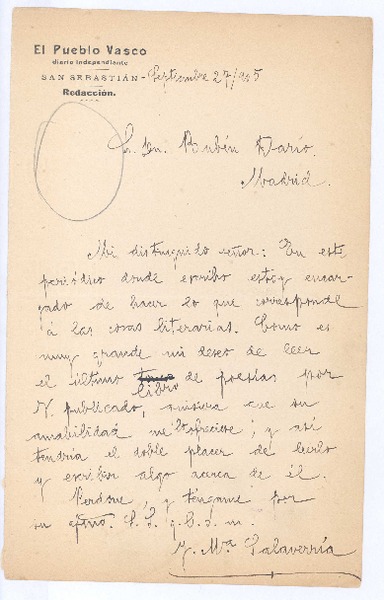 El Pueblo Vasco
diario independiente
SAN SEBASTIÁN - Septiembre 27/905
Redacción.
S. Dn. Rubén Darío.
Madrid.
Mi distinguido señor: En este
periódico donde escribo estoy encar-
gado de hacer lo que corresponde
á las cosas literarias. Como es
muy grande mi deseo de leer
el último libro de poesías por
V. publicado, quisiera que su
amabilidad me lo ofreciese; y así
tendría el doble placer de leerlo
y escribir algo acerca de él.
Perdone, y téngame por
su afmo. S. S. q. b. s. m.
J. Mª Salaverría